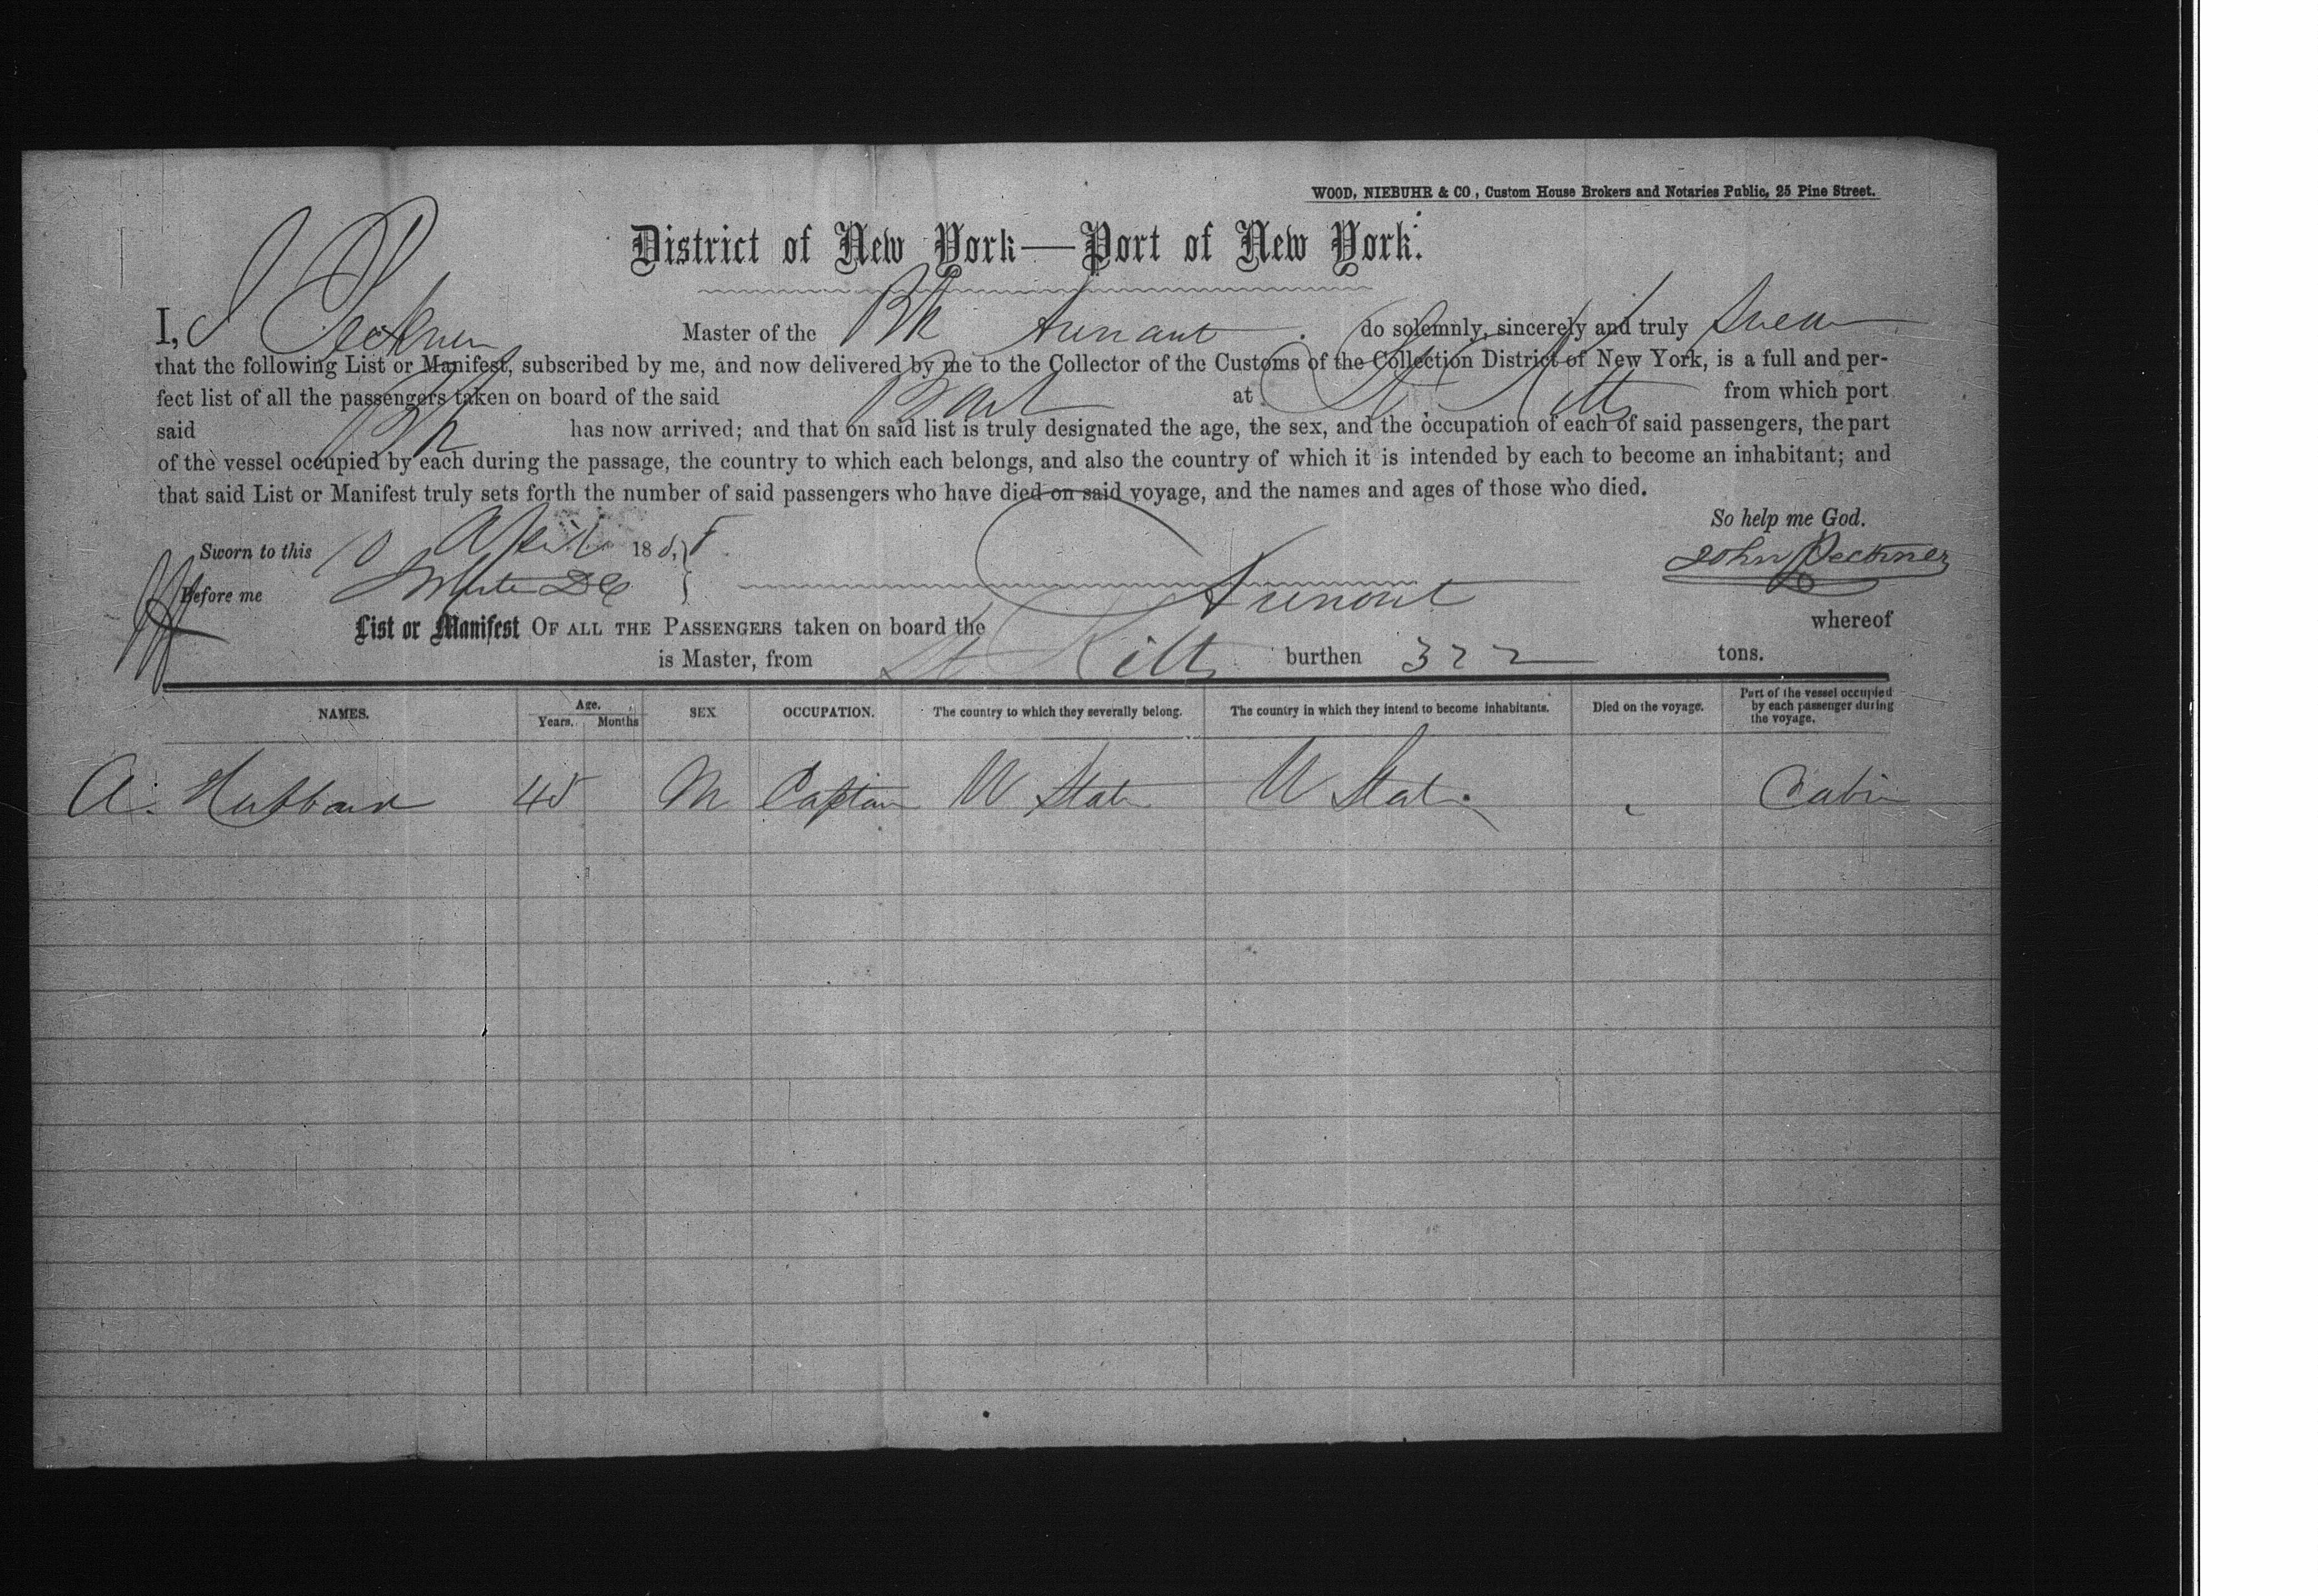 WOOD, NIEBUHR & CO., Custom House Brokers and Notaries Public, 25 Pine Street.
District of New York—Port of New York.
I, J Peckner Master of the Bk do solemnly, sincerely and truly Swear
that the following List or Manifest, subscribed by me, and now delivered by me to the Collector of the Customs of the Collection District of New York, is a full and per-
fect list of all the passengers taken on board of the said Bark at St Kitts from which port
said Bk has now arrived; and that on said list is truly designated the age, the sex, and the occupation of each of said passengers, the part
of the vessel occupied by each during the passage, the country to which each belongs, and also the country of which it is intended by each to become an inhabitant; and
that said List or Manifest truly sets forth the number of said passengers who have died on said voyage, and the names and ages of those who died.
So help me God.
Sworn to this 10 April 188
John Peckner
Before me
List or Manifest OF ALL THE PASSENGERS taken on board the whereof
is Master, from St Kitts burthen 322 tons.
NAMES. Age. Years. Months SEX OCCUPATION. The country to which they severally belong. The country in which they intend to become inhabitants. Died on the voyage. Part of the vessel occupied by each passenger during the voyage.
A. Hubbard 45 M Captain U States U States Cabin